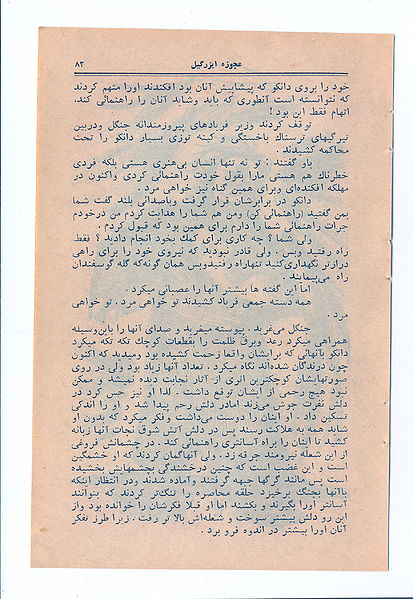 عجوزه ایزرگیل
۸۳
خود را بروی دانکو که پیشاپیش آنان بود افکندند اورا متهم کردند
که نتوانسته است آنطوری که باید وشاید آنان را راهنمائی کند.
اتهام فقط این بود !
توقف کردند وزیر فریادهای پیروزمندانه جنگل ودربین
تیرگیهای ترسناك باخستگی و کینه توزی بسیار دانکو را تحت
محاکمه کشیدند .
باو گفتند : تو نه تنها انسان بی‌هنری هستی بلکه فردی
خطرناك هم هستی مارا بقول خودت راهنمائی کردی واکنون در
مهلکه افکنده‌ای وبرای همین گناه نیز خواهی مرد .
دانکو در برابرشان قرار گرفت وباصدائی بلند گفت شما
بمن گفتید (راهنمائی کن) ومن هم شما را هدایت کردم من درخودم
جرات راهنمائی شما را دارم برای همین بود که قبول کردم .
ولی شما ؟ چه کاری برای کمك بخود انجام دادید ؟ فقط
راه رفتید وبس . ولی قادر نبودید که نیروی خود را برای راهی
درازتر نگهداری‌کنید تنهاراه رفتیدوبس همان گونه‌که گله گوسفندان
راه می‌پیمایند .
اما این گفته ها بیشتر آنها را عصبانی میکرد .
همه دسته جمعی فریاد کشیدند تو خواهی مرد . تو خواهی
مرد .
جنگل می‌غرید . پیوسته میغرید و صدای آنها را باین‌وسیله
همراهی میکرد رعد وبرق ظلمت را بقطعات کوچك تکه تکه میکرد
دانکو بآنهائی که برایشان واقعا زحمت کشیده بود ومیدید که اکنون
چون درندگان شده‌اند نگاه میکرد . تعداد آنها زیاد بود ولی در روی
صورتهایشان کوچکترین اثری از آثار نجابت دیده نمیشد و ممکن
نبود هیچ رحمی از ایشان توقع داشت . لذا او نیز حس کرد در
دلش نفرت جوش میزند امادر دلش رحم پیدا شد و او را اندکی
تسکین داد . او اینان را دوست میداشت و فکر میکرد که بدون او
شاید همه به هلاکت رسند پس در دلش آتش شوق نجات آنها زبانه
کشید تا اینان را براه آسانتری راهنمائی کند . در چشمانش فروغی
از این شعله نیرومند جرقه زد . ولی آنهاگمان کردند که او خشمگین
است و این غضب است که چنین درخشندگی بچشمهایش بخشیده
است پس مانند گرگها جبهه گرفتند وآماده شدند ودر انتظار اینکه
باآنها بجنگ برخیزد حلقه محاصره را تنگ‌تر کردند که بتوانند
آسانتر اورا بگیرند و بکشند اما او قبلا فکرشان را خوانده بود واز
این رو دلش بیشتر سوخت و شعله‌اش بالا تر رفت . زیرا طرز تفکر
آنان اورا بیشتر در اندوه فرو برد .